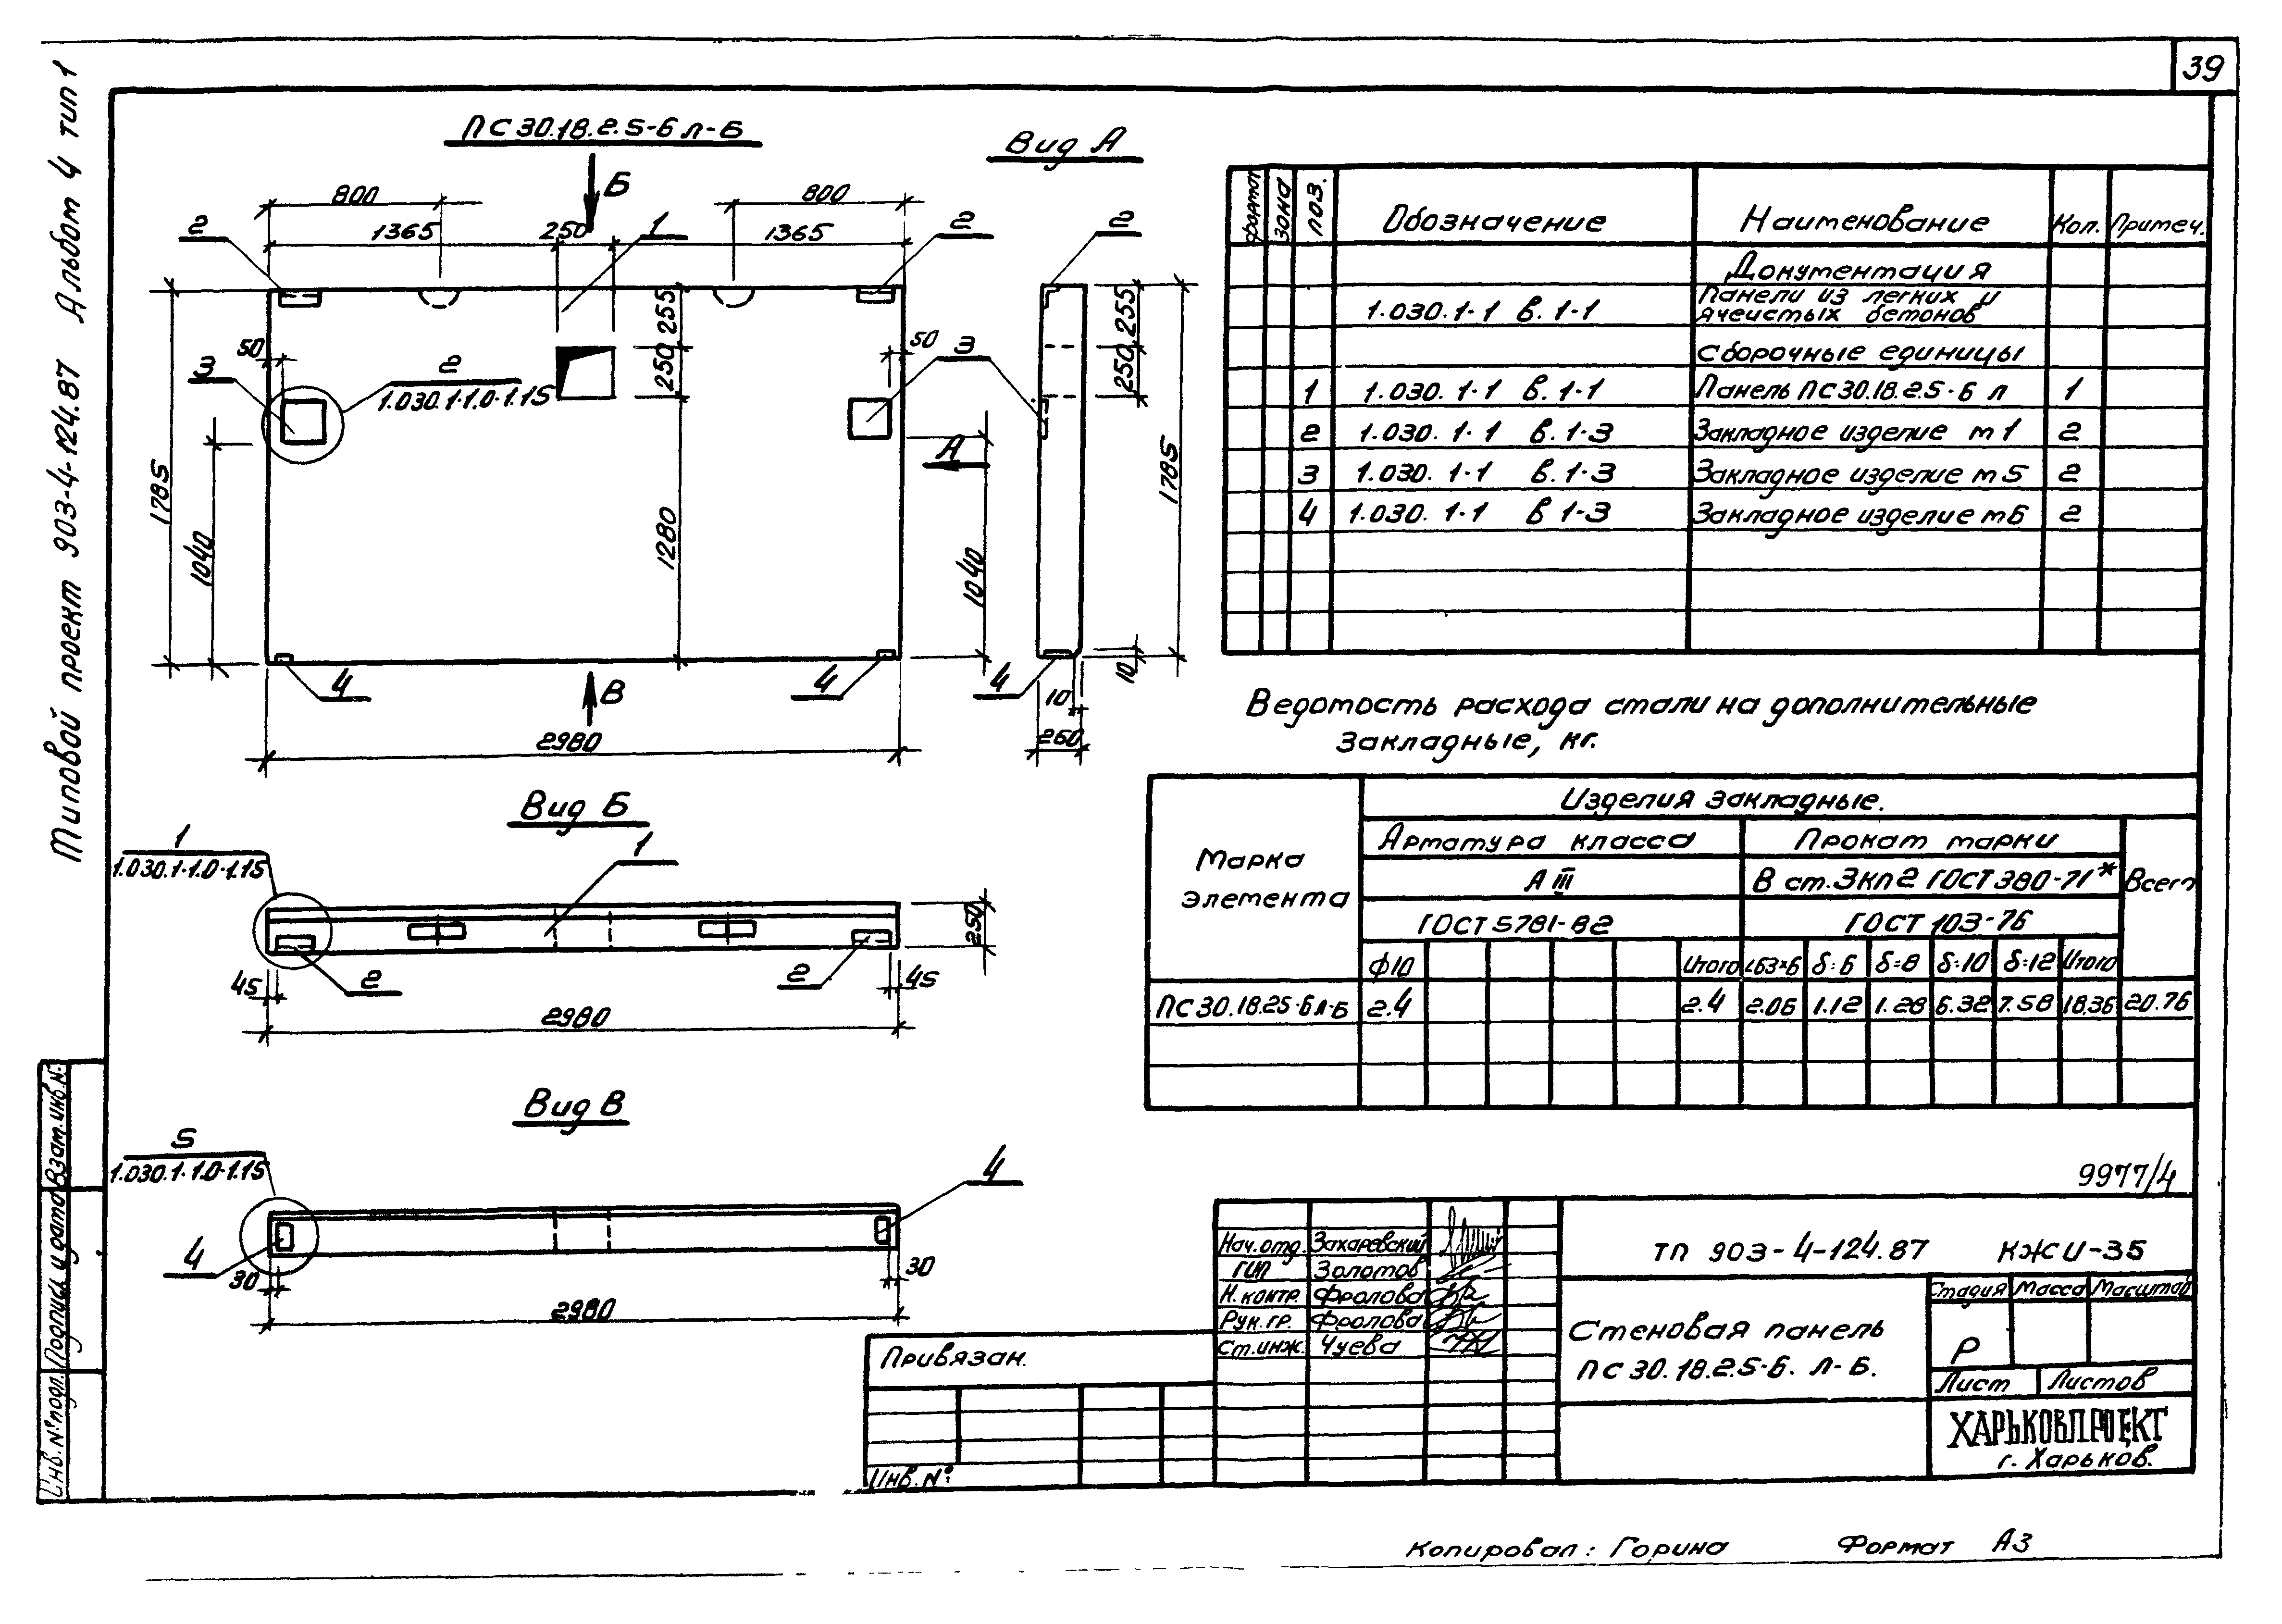 39
Типовой проект 903-4-124.87 Альбом 4 тип 1
ПС 30.18.2.5-6 л-Б
Б
800
800
1365
250
1365
2
1
2
255
50
250
50
3
2
1.030.1-1.0-1.15
3
А
1785
1040
1280
1040
4
4
В
2980
Вид А
2
255
250
1785
4
10
10
250
Вид Б
1
1.030.1-1.0-1.15
1
250
2
2
45
45
2980
Вид В
5
1.030.1-1.0-1.15
4
4
30
30
2980
Формат Зона Поз. Обозначение Наименование Кол. Примеч.
Документация
1.030.1-1 в.1-1 Панели из легких и
ячеистых бетонов
Сборочные единицы
1 1.030.1-1 в.1-1 Панель ПС 30.18.2.5-6 л 1
2 1.030.1-1 в.1-3 Закладное изделие м1 2
3 1.030.1-1 в.1-3 Закладное изделие м5 2
4 1.030.1-1 в 1-3 Закладное изделие м6 2
Ведомость расхода стали на дополнительные
закладные, кг.
Марка
элемента
Изделия закладные.
Арматура класса Прокат марки
А III В ст.3кп2 ГОСТ 380-71* Всего
ГОСТ 5781-82 ГОСТ 103-76
ф10 Итого L63×6 δ=6 δ=8 δ=10 δ=12 Итого
ПС 30.18.25-6л-Б 2.4 2.4 2.06 1.12 1.28 6.32 7.58 18.36 20.76
9977/4
Нач.отд. Захаревский
ГИП Золотов
Н.контр. Фролова
Рук.гр. Фролова
Ст.инж. Чуева
ТП 903-4-124.87 КЖСИ-35
Стеновая панель
ПС 30.18.2.5-6. л-Б.
Стадия Масса Масштаб
Р
Лист Листов
ХАРЬКОВПРОЕКТ
г. Харьков.
Привязан.
Инв.№
Взам.инв.№
Подпись и дата
Инв.№ подл.
Копировал: Горина Формат А3